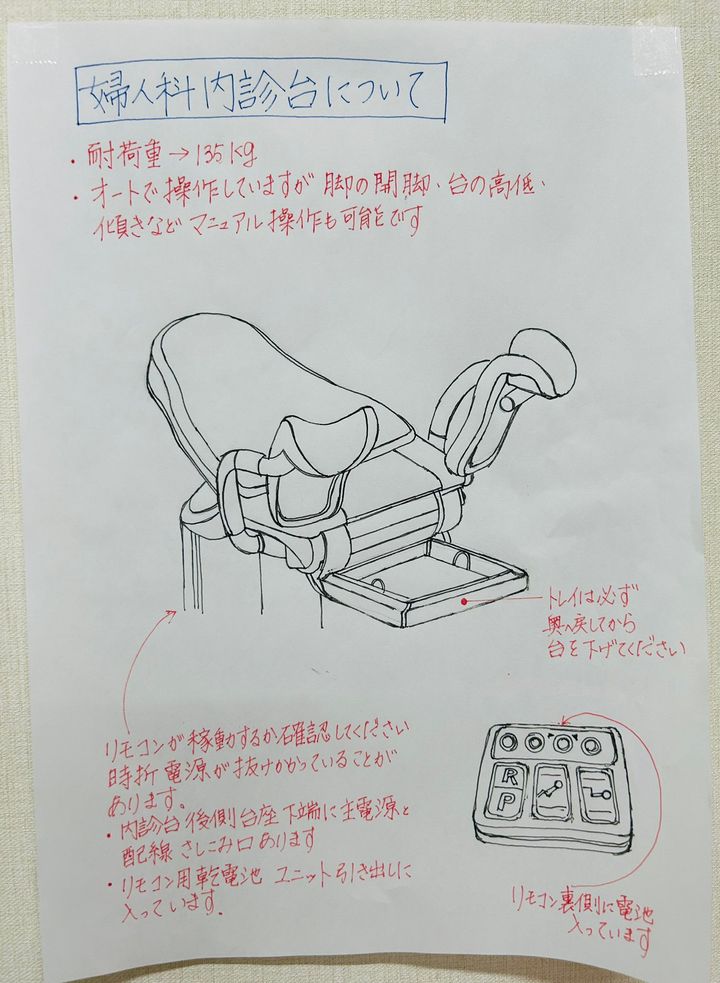 婦人科内診台について
・耐荷重→135kg
・オートで操作していますが 脚の開脚、台の高低、
傾きなど マニュアル操作も可能です
トレイは必ず
奥へ戻してから
台を下げてください
リモコンが稼動するか確認してください
時折 電源が抜けかかっていることが
あります。
・内診台 後側台座 下端に主電源と
配線 さしこみ口 あります
・リモコン用乾電池 ユニット引き出しに
入っています.
R
P
リモコン裏側に電池
入っています